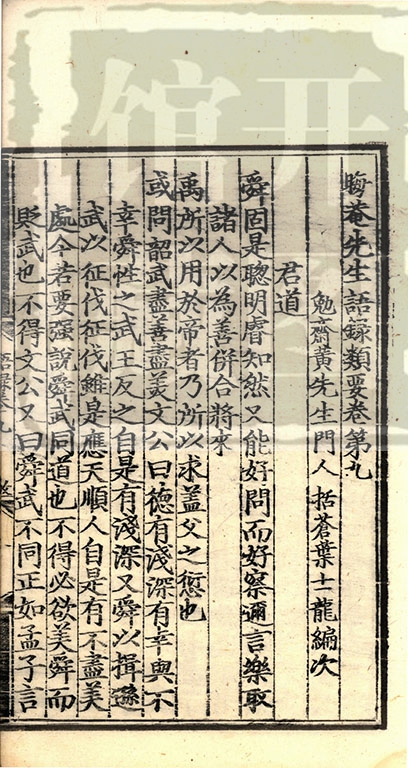 晦菴先生語錄類要卷第九
勉齋黃先生門人 括蒼葉士龍編次
君道
舜固是聰明睿知然又能好問而好察邇言樂取
諸人以為善併合將來
禹所以用於帝者乃所以求盖父之愆也
或問韶武盡善盡美文公曰德有淺深有幸與不
幸舜性之武王反之自是有淺深又舜以揖遜
武以征伐征伐雖是應天順人自是有不盡美
處今若要强說舜武同道也不得必欲美舜而
貶武也不得文公又曰舜武不同正如孟子言